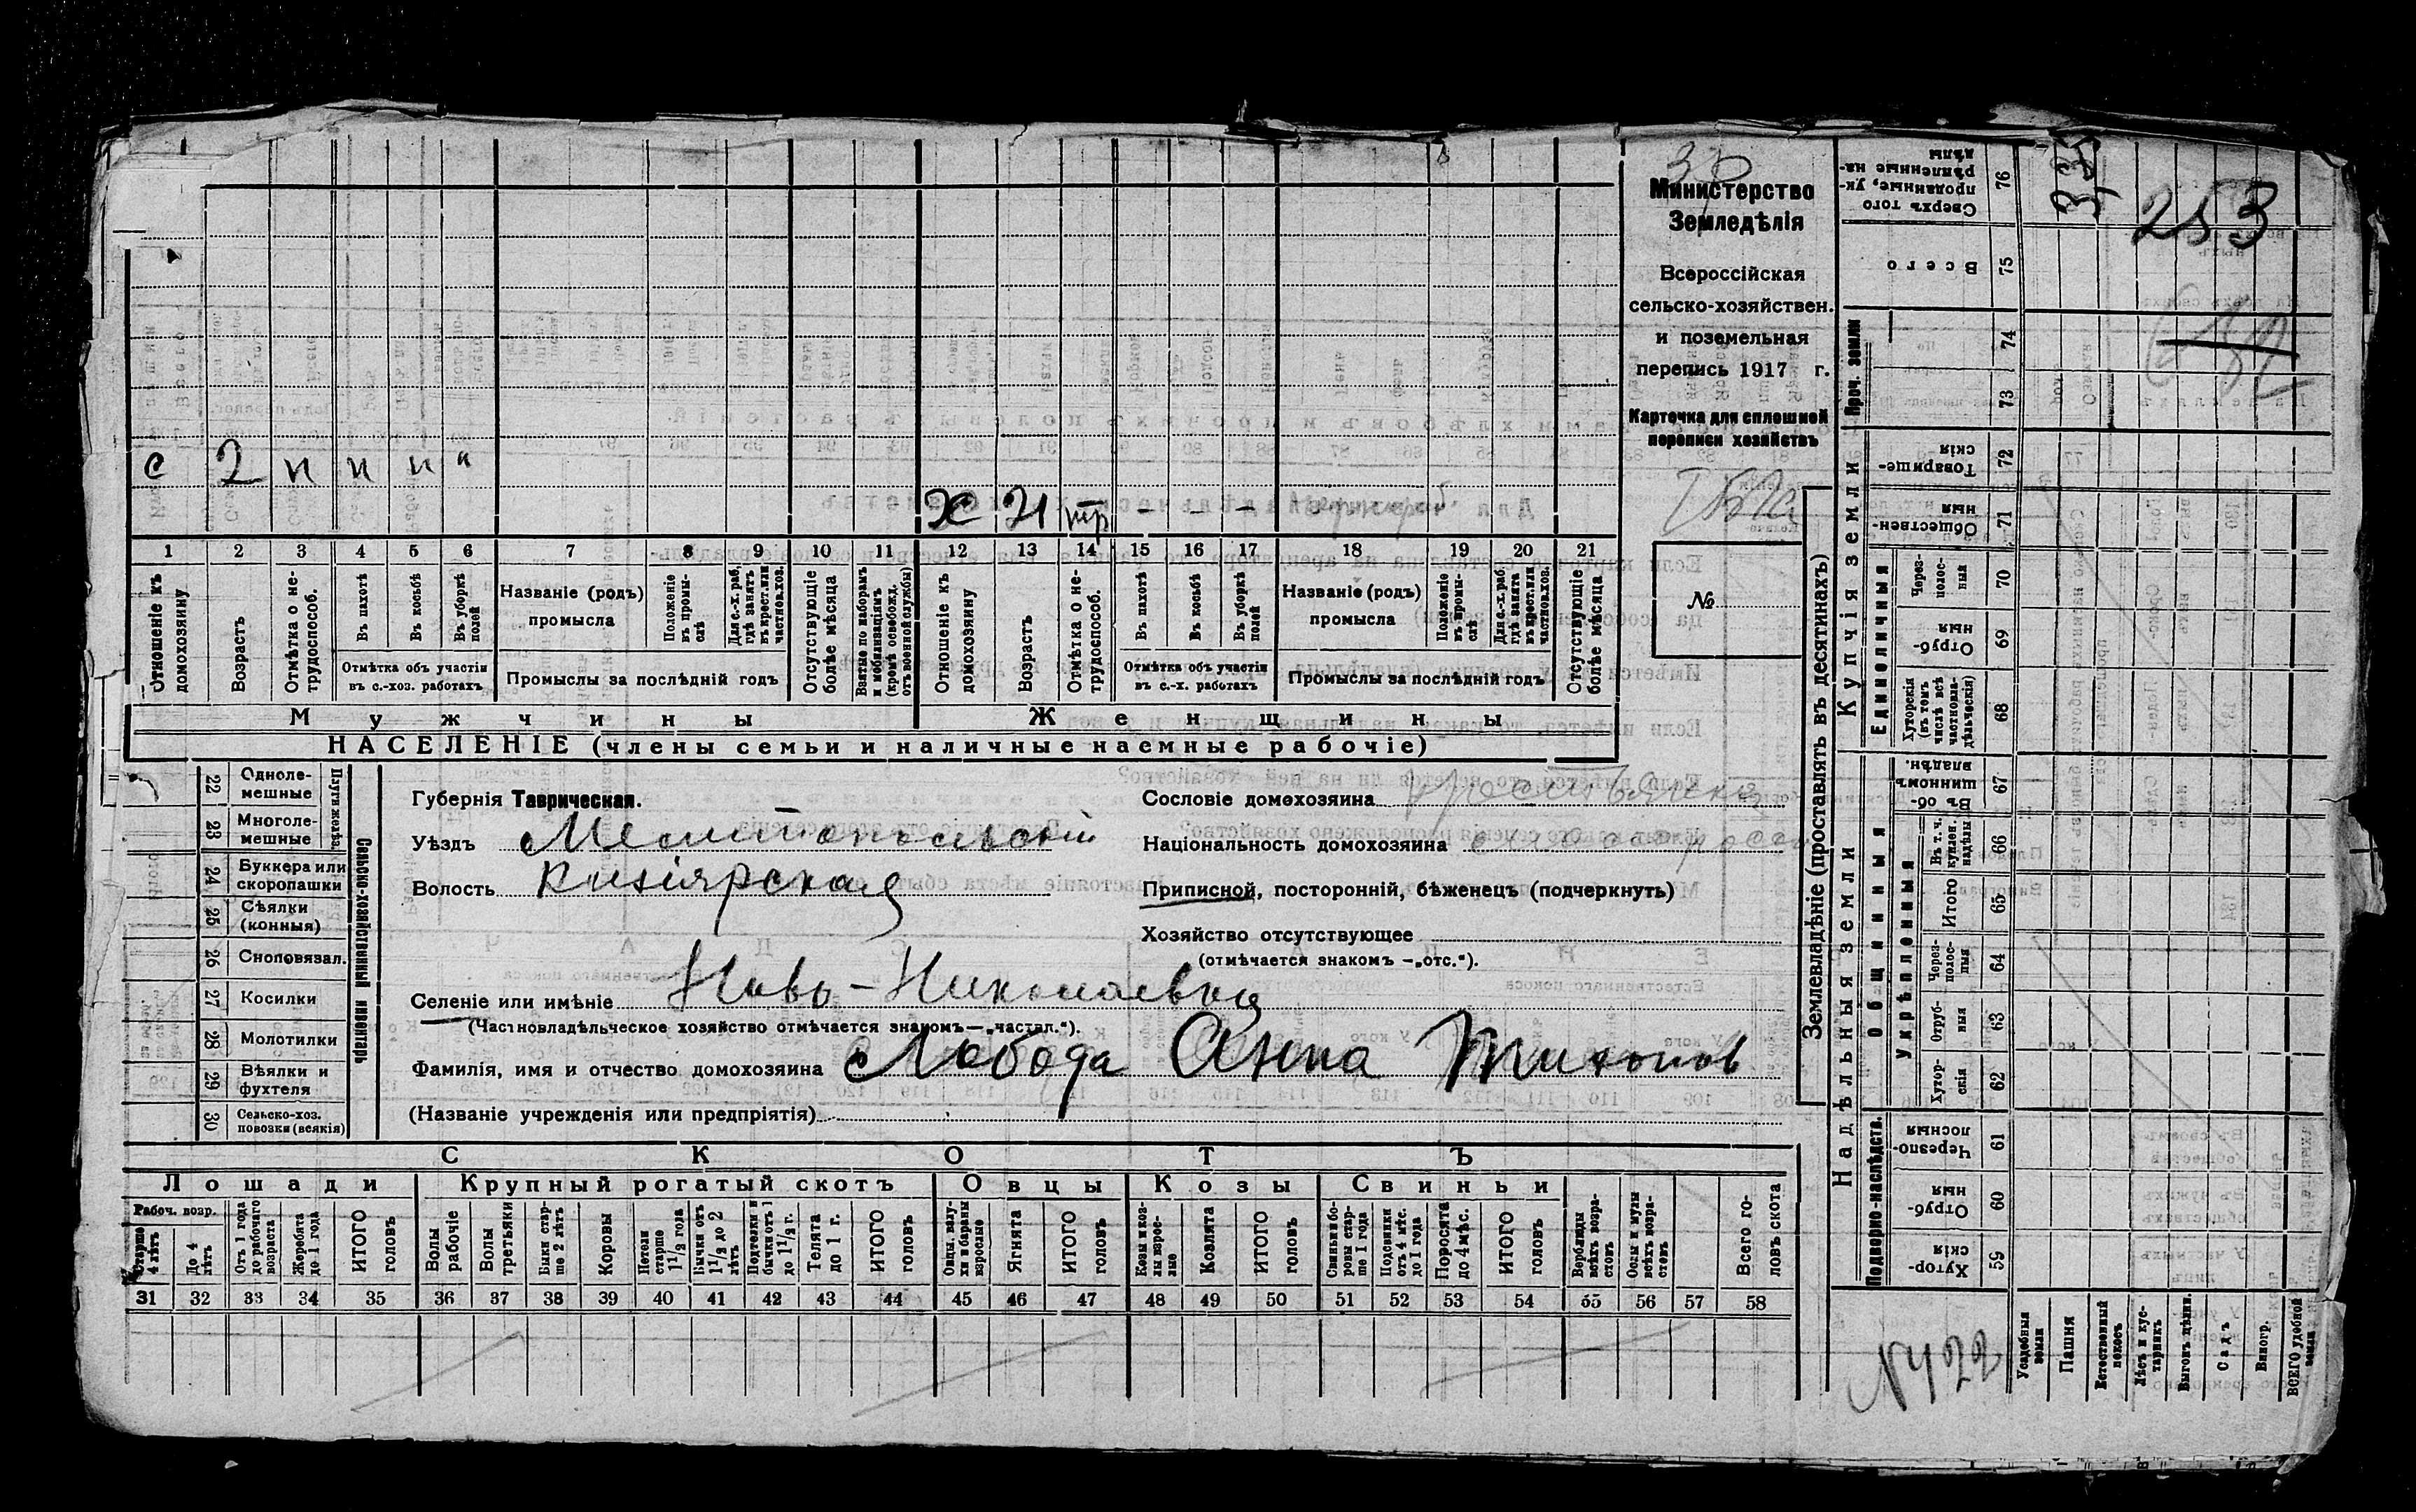 253
Министерство
Земледѣлія
Всероссійская
сельско-хозяйствен.
и поземельная
перепись 1917 г.
Карточка для сплошной
переписи хозяйствъ
№
с 2 п п п п
Х 21 тр – – –
1 2 3 4 5 6 7 8 9 10 11 12 13 14 15 16 17 18 19 20 21
Отношеніе къ домохозяину
Возрастъ
Отмѣтка о нетрудоспособ.
Въ пахотѣ
Въ косьбѣ
Въ уборкѣ полей
Отмѣтка объ участіи
въ с.-хоз. работахъ
Названіе (родъ)
промысла
Положеніе въ промыслѣ
Для с.-х. раб. гдѣ занятъ въ крест. или частнов. хоз.
Промыслы за послѣдній годъ
Отсутствующіе болѣе мѣсяца
Взятые по наборамъ и мобилизаціямъ (кромѣ освобожд. отъ военной службы)
Отношеніе къ домохозяину
Возрастъ
Отмѣтка о нетрудоспособ.
Въ пахотѣ
Въ косьбѣ
Въ уборкѣ полей
Отмѣтка объ участіи
въ с.-х. работахъ
Названіе (родъ)
промысла
Положеніе въ промыслѣ
Для с.-х. раб. гдѣ занята въ крест. или частнов. хоз.
Промыслы за послѣдній годъ
Отсутствующіе болѣе мѣсяца
Мужчины
Женщины
НАСЕЛЕНІЕ (члены семьи и наличные наемные рабочіе)
22 Однолемешные
23 Многолемешные
Плуги желѣз.
24 Буккера или скоропашки
25 Сѣялки (конныя)
26 Сноповязал.
27 Косилки
28 Молотилки
29 Вѣялки и фухтеля
30 Сельско-хоз. повозки (всякія)
Сельско-хозяйственный инвентарь
Губернія Таврическая.
Уѣздъ Мелитопольскій
Волость Кизіярская
Селеніе или имѣніе Ново-Николаевка
(Частновладѣльческое хозяйство отмѣчается знакомъ—„частвл.“).
Фамилія, имя и отчество домохозяина Лобода Анна Тихонов
(Названіе учрежденія или предпріятія)
Сословіе домохозяина крестьянка
Національность домохозяина малоросс
Приписной, посторонній, бѣженецъ (подчеркнуть)
Хозяйство отсутствующее
(отмѣчается знакомъ —„отс.“).
СКОТЪ
Лошади Крупный рогатый скотъ Овцы Козы Свиньи
Рабоч. возр.
Старше 4 лѣтъ
До 4 лѣтъ
Отъ 1 года до рабочаго возраста
Жеребята до 1 года
ИТОГО головъ
Волы рабочіе
Волы третьяки
Быки старше 2 лѣтъ
Коровы
Нетели старше 1½ года
Бычки отъ 1½ до 2 лѣтъ
Нетели и бычки отъ 1 до 1½ г.
Телята до 1 г.
ИТОГО головъ
Овцы, валухи и бараны взрослые
Ягнята
ИТОГО головъ
Козы и козлы взрослые
Козлята
ИТОГО головъ
Свиньи и боровы старше 1 года
Подсвинки отъ 4 мѣс. до 1 года
Поросята до 4 мѣс.
ИТОГО головъ
Верблюды всѣхъ возрастовъ
Ослы и мулы всѣхъ возрастовъ
Всего головъ скота
31 32 33 34 35 36 37 38 39 40 41 42 43 44 45 46 47 48 49 50 51 52 53 54 55 56 57 58
Землевладѣніе (проставлять въ десятинахъ)
Надѣльныя земли
Купчія земли
Проч. земли
Подворно-наслѣдств.
Общинныя
Укрѣпленныя
Единоличныя
Сверхъ того проданные, укрѣпленные надѣлы 76
Всего 75
74
73
Товарищескія 72
Общественныя 71
Черезполосный 70
Отрубныя 69
Хуторскія (въ томъ числѣ всѣ частновладѣльческія) 68
Въ общинномъ владѣн. 67
Въ т. ч. куплен. надѣлы 66
Итого 65
Черезполосныя 64
Отрубныя 63
Хуторскія 62
Черезполосныя 61
Отрубныя 60
Хуторскія 59
Усадебныя земли
Пашня
Естественный покосъ
Лѣсъ и кустарникъ
Выгонъ
Садъ
Виногр.
ВСЕГО удобной земли
№422